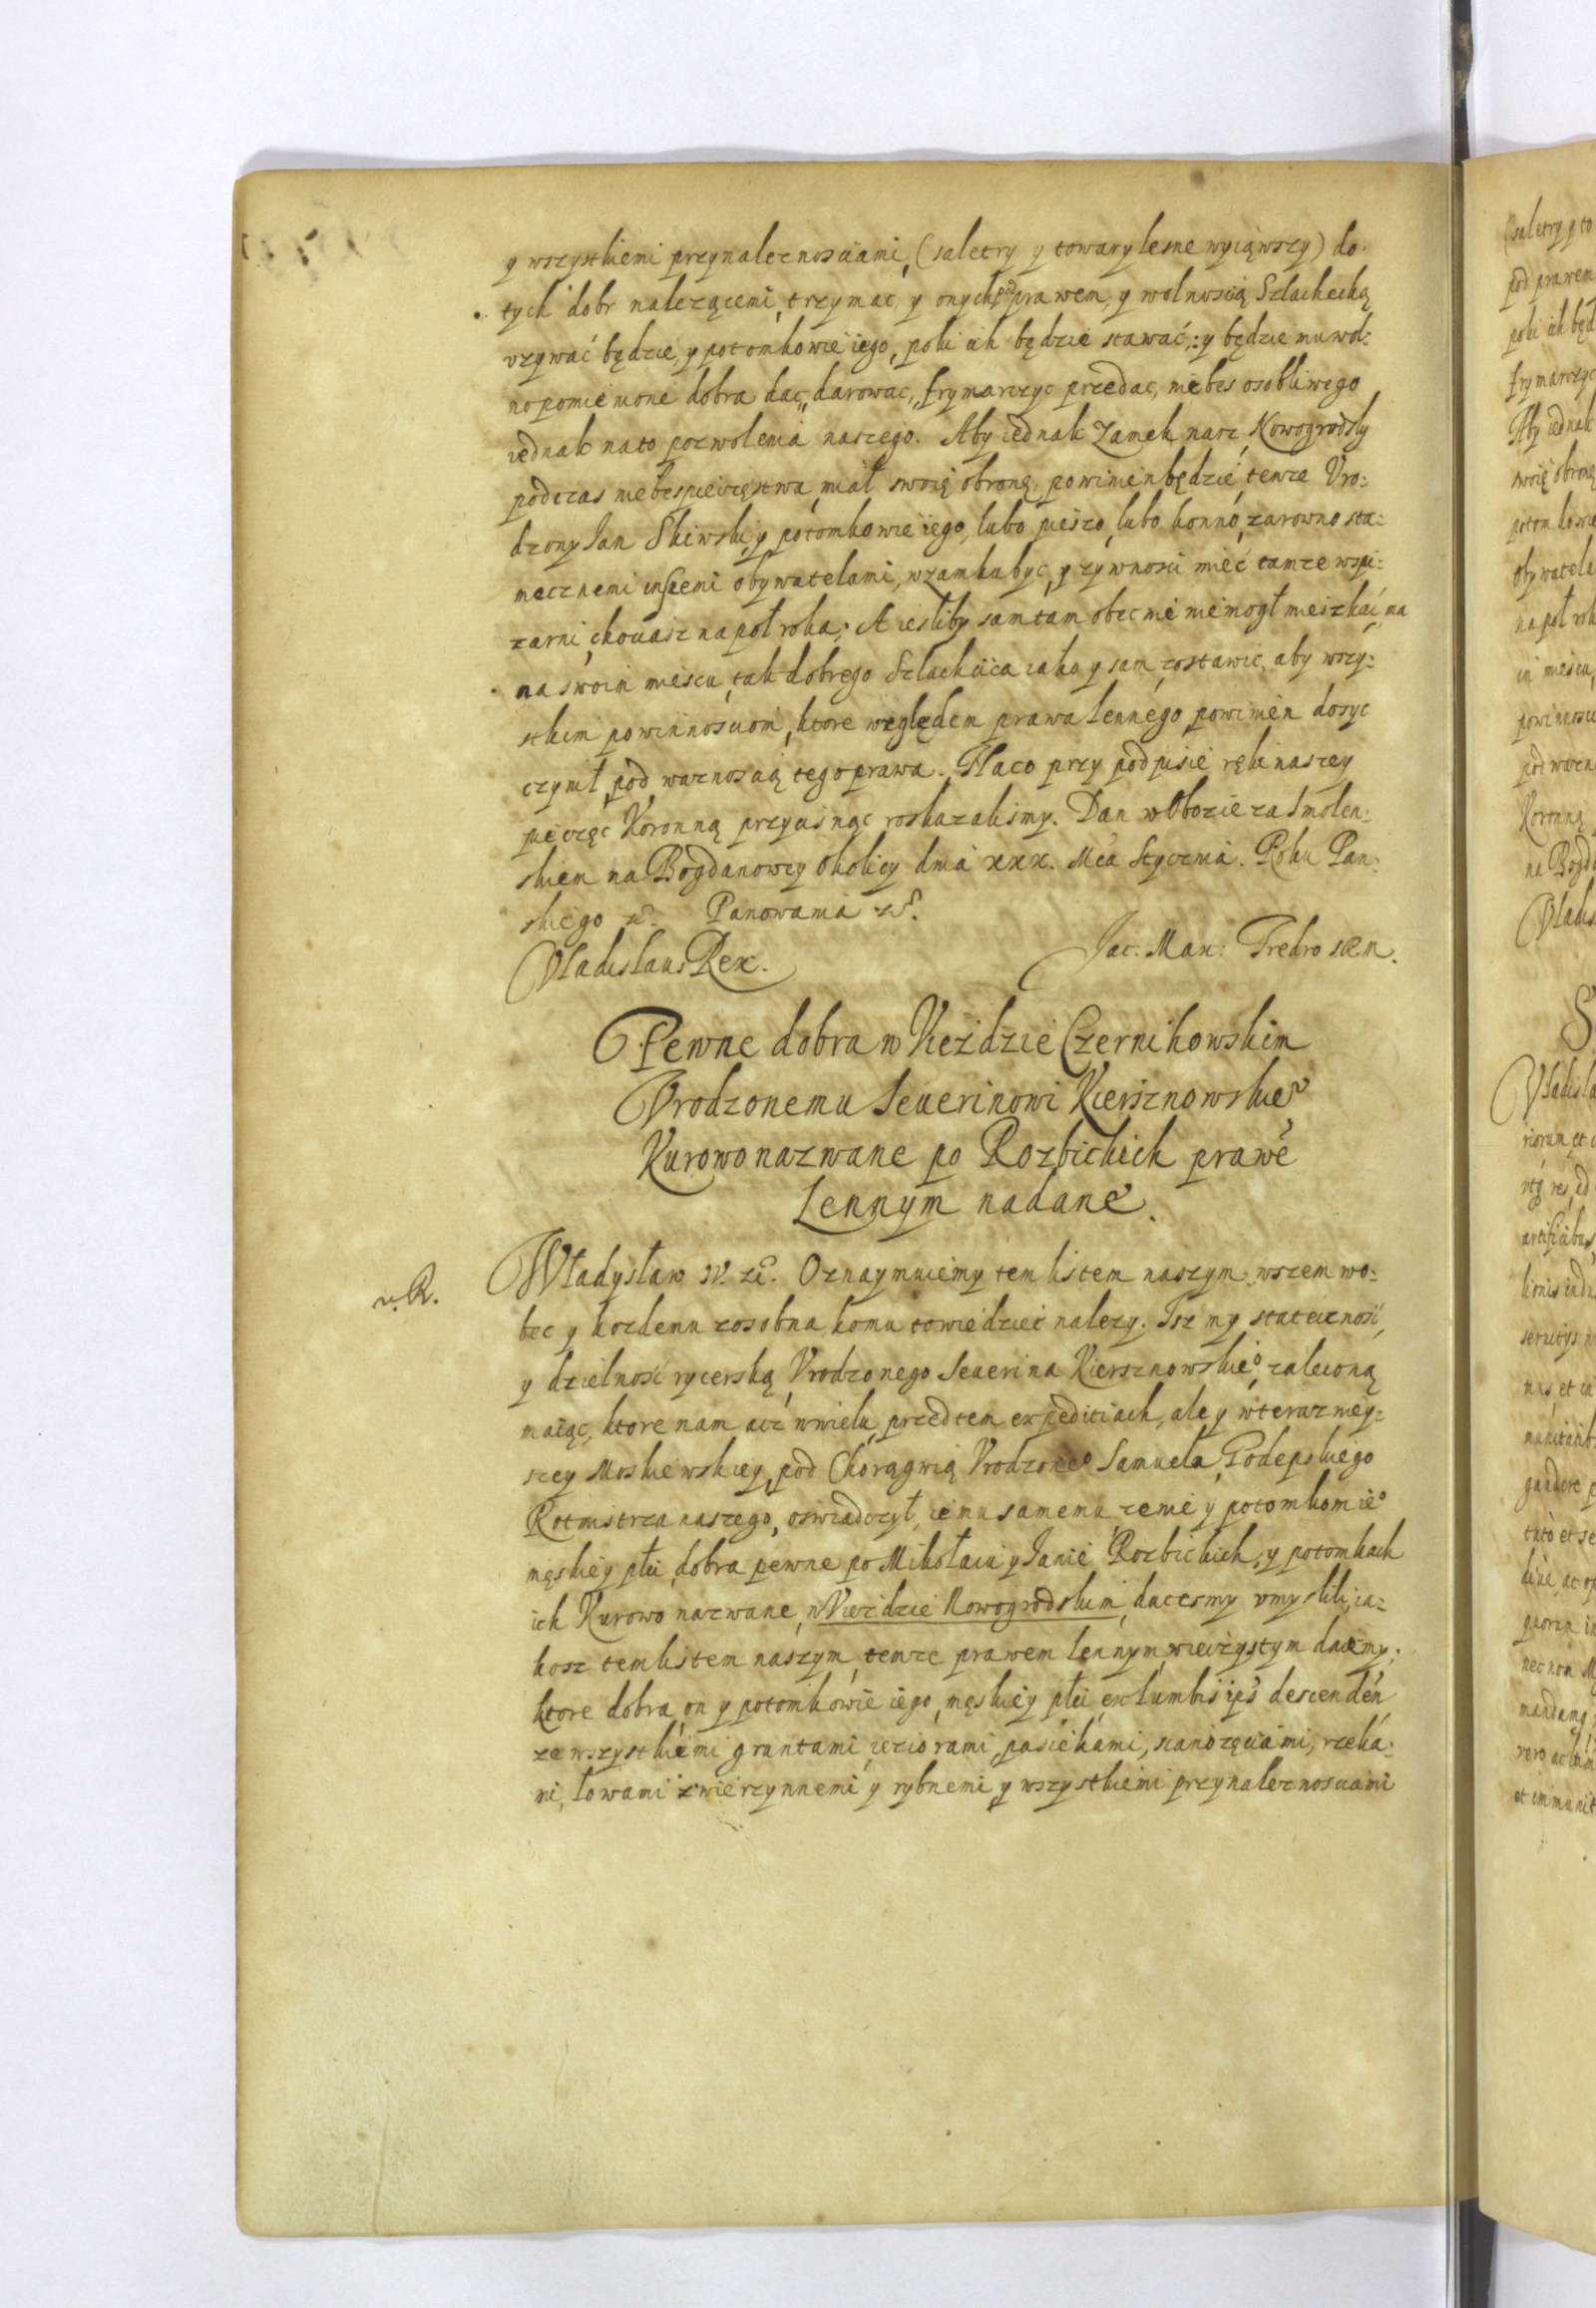 y wszystkiemi przynaleznosciami, (saletry y towary lesne wyiąwszy) do.
tych dobr nalezącemi, trzymac, y onych pod prawem, y wolnoscią Szlachecką
vzywać będzie, y potomkowie iego, poki ich będzie stawać: y będzie mu wol:
no pomienione dobra dac, darowac, frymarczyc przedac, niebes osobliwego
iednak na to pozwolenia naszego. Aby iednak Zamek nasz Nowogrodsky
podczas niebespieczęstwa, miał swoię obronę, powinien będzie, tenze Vro:
dzony Jan Skiwski, y potomkowie iego, lubo pieszo, lubo konno, zarowno sta:
tecznemi inszemi obywatelami, w zamku byc, y zywnosci mieć tamze w spi:
zarni, chociasz na poł roka; A iesliby sam tam obecnie niemogł mieszkać, ma
na swoim miescu, tak dobrego Szlachcica iako y sam, zostawic, aby wszy:
stkim powinnosciom, ktore względem prawa lennego powinien dosyc
czynił, pod waznoscią tego prawa. Na co przy podpisie ręki naszey
pieczęc Koronną przycisnąc roskazalismy. Dan w Obozie za Smolen:
skiem na Bogdanowey Okolicy dnia xxx. Mca Stycznia. Roku Pan:
skiego etc. Panowania etc.
Vladislaus Rex. Jac. Max: Fredro
Pewne dobra w Vieździe Czernihowskim
Vrodzonemu Seuerinowi Kiersznowskieo
Kurowo nazwane po Rozbickich prawē
Lennym nadane.
Władysław IV. etc. Oznaymuiemy tem listem naszym, wszem wo:
bec y kozdemu zosobna komu to wiedziec nalezy. Isz my stateczność,
y dzielność rycerską Vrodzonego Seuerina Kiersznowskieo, zaleconą
maiąc, ktore nam acz w wielu przedtem expeditiach, ale y w terazniey:
szey Moskiewskiey, pod Chorągwią Vrodzoneo Samuela Godepskiego
Rotmistrza naszego, oswiadczył, iemu samemu zenie y potomkom ieo
męskiey płci, dobra pewne po Mikołaiu y Janie Rozbickich, y potomkach
ich Kurowo nazwane, w Vieździe Nowogrodskim, dac esmy vmyslili, ia:
kosz tem listem naszym, temze prawem lennym, wieczystym daiemy;
ktore dobra, on y potomkowie iego, męskiey płci, ex lumbis ips descenden
ze wszystkiemi gruntami, ieziorami, pasiekami, sianozęciami, rzeka:
mi, łowami zwierzynnemi y rybnemi, y wszystkiemi przynaleznosciami